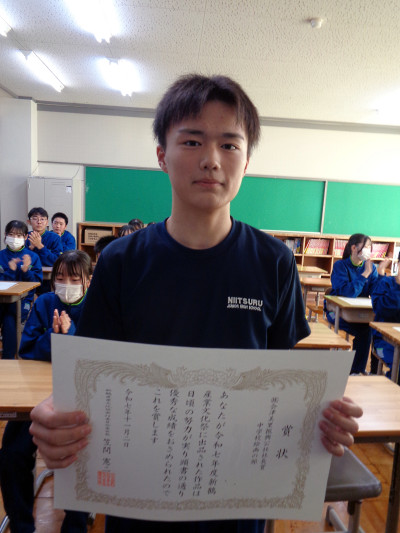 NIITSURU
JUNIOR HIGH SCHOOL
賞状
あなたが令和七年度新鶴
産業文化祭に出品された作品は
日頃の努力が実り頭書の通り
優秀な成績をおさめられたので
これを賞します
令和七年十一月二日